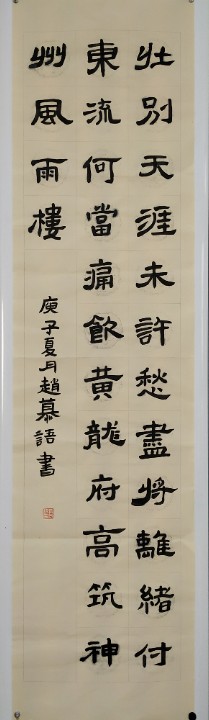 壯別天涯未許愁盡將離緒付
東流何當痛飲黄龍府高筑神
州風雨樓
庚子夏月趙慕語書